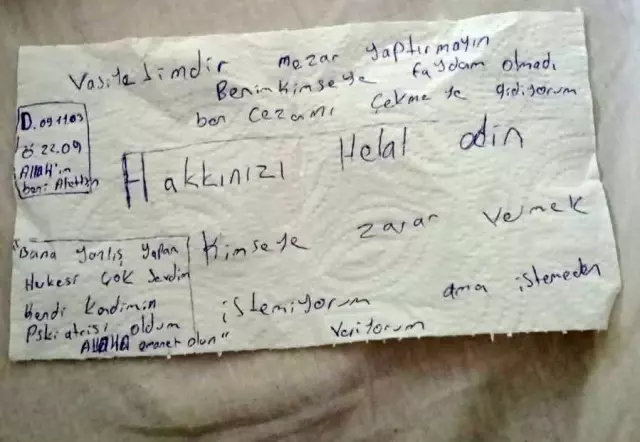 Vasiyetimdir mezar yaptırmayın
Benim kimseye faydam olmadı
ben cezamı çekmeye gidiyorum
D. 09.11.03
Ö 22.09
ALLAH'ım
beni Affetsin
Hakkınızı Helal edin
Kimseye zarar vermek
istemiyorum ama istemeden
veriyorum
"Bana yanlış yapan
Herkesi çok sevdim
Kendi Kendimin
Pskiatrisi oldum
ALLAHA emanet olun"